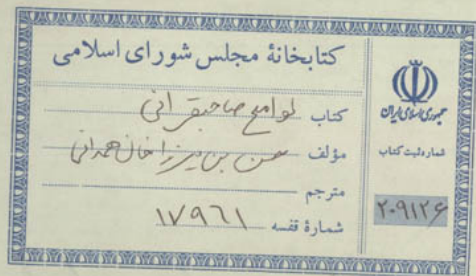 کتابخانهٔ مجلس شورای اسلامی
کتاب لوامع صاحبقرانی
مؤلف حسن بن میرزا خان همدانی
مترجم
شمارهٔ قفسه ۱۷۹۶۱
جمهوری اسلامی ایران
شماره ثبت کتاب
۲۰۹۱۲۶